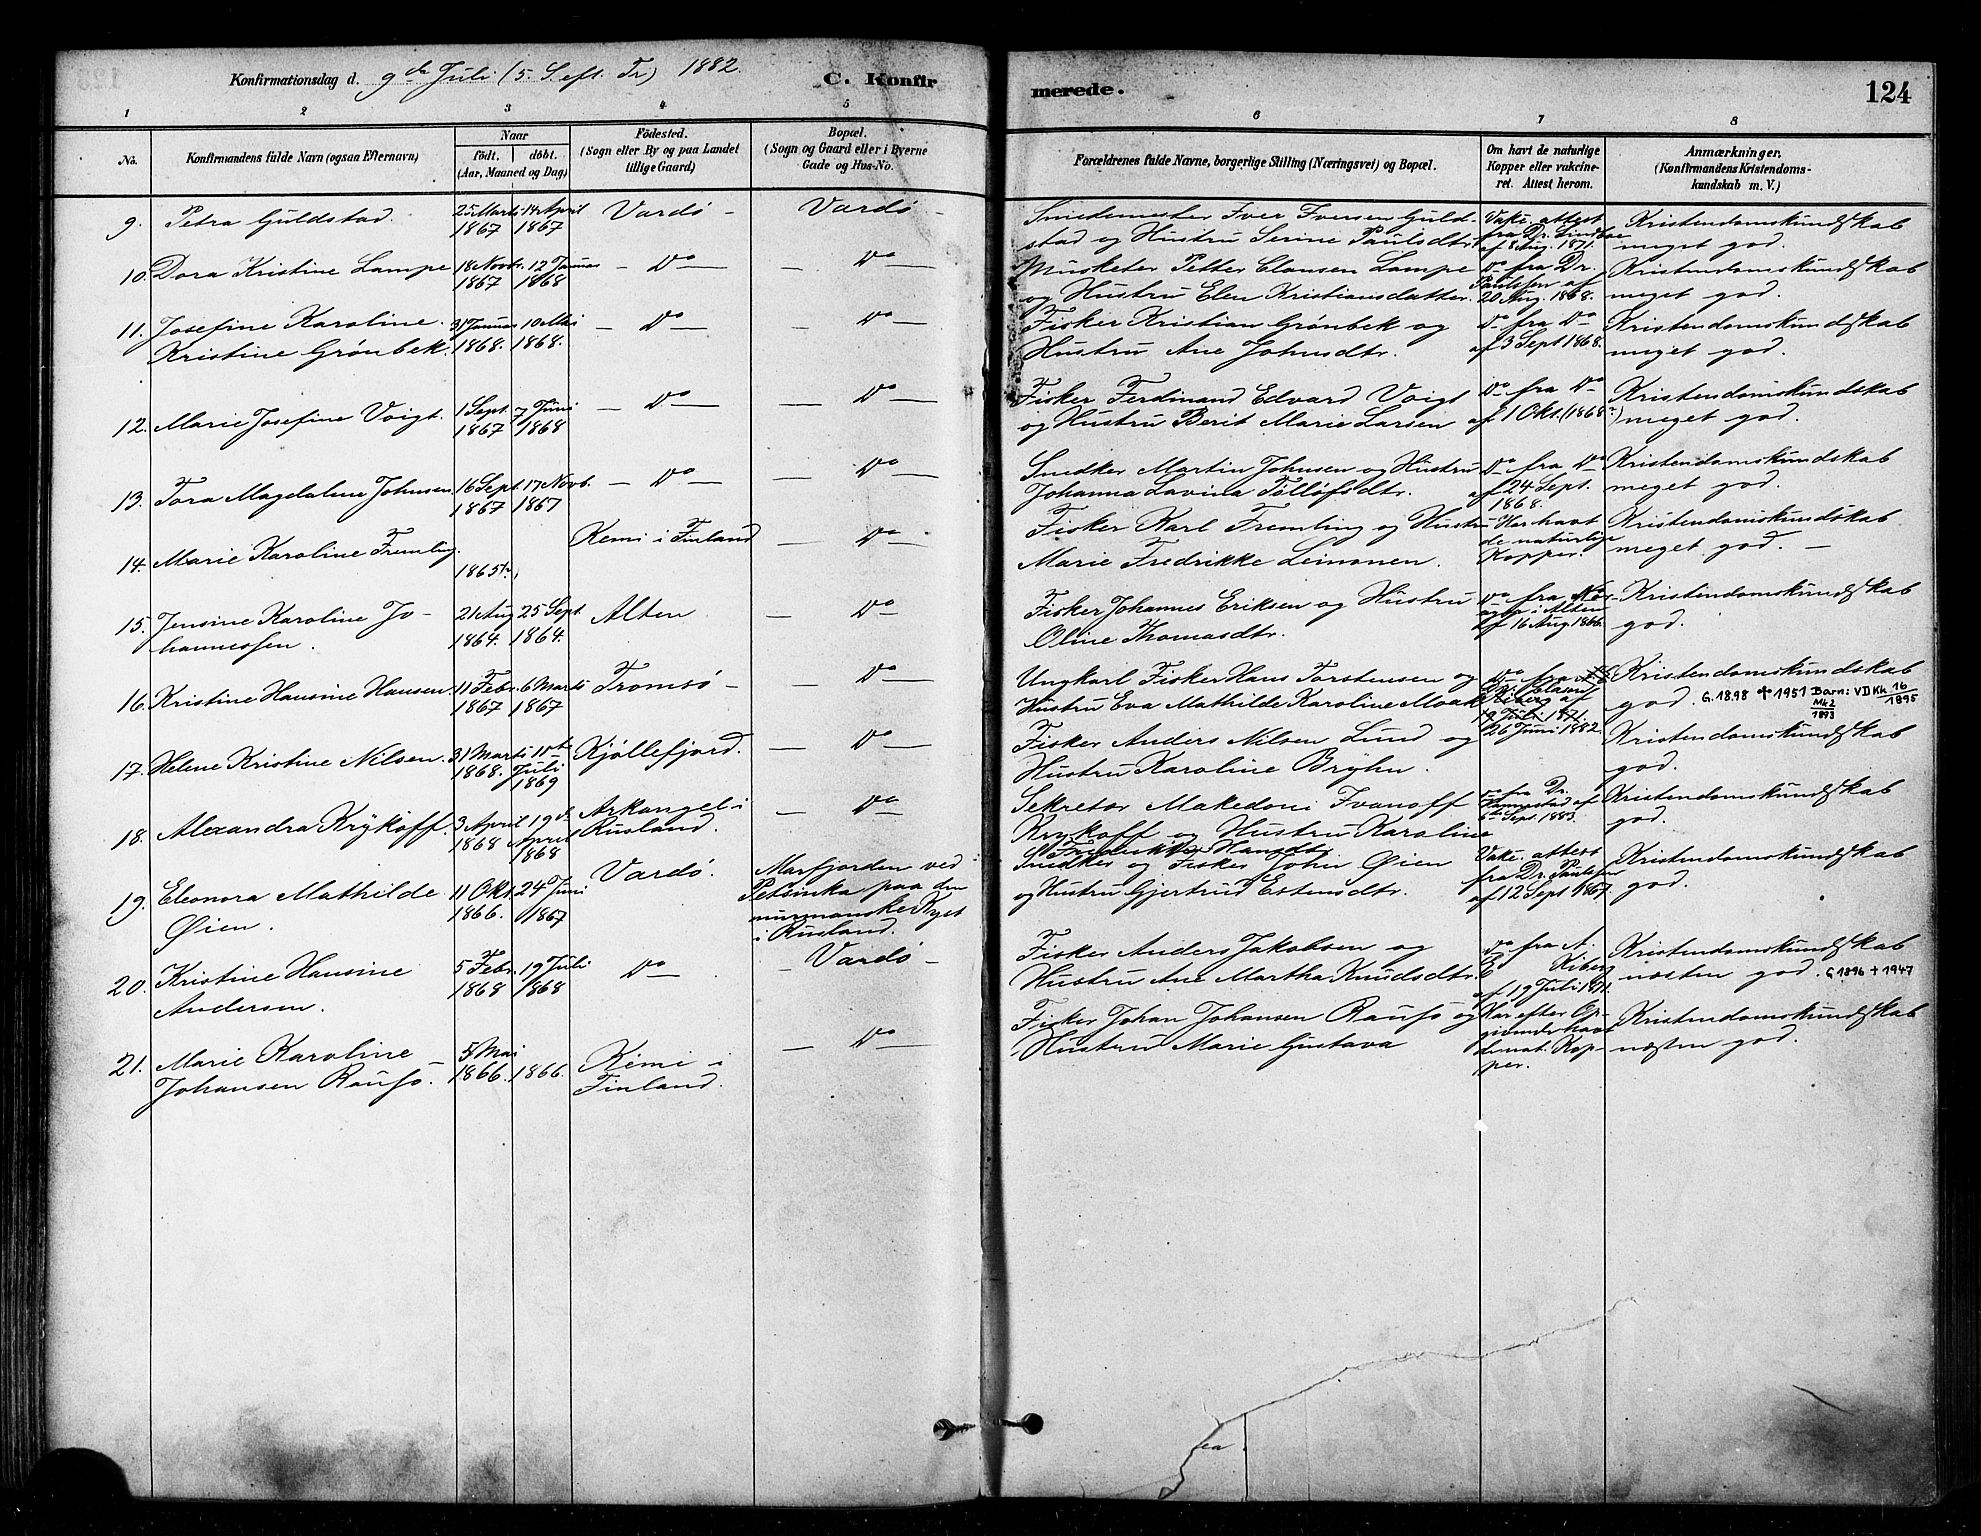 Konfirmationsdag d. 9de Juli (5. S. eft. Tr) 1882.
C. Konfirmerede.
124
1 2 3 4 5 6 7 8
No.
Konfirmandens fulde Navn (ogsaa Efternavn)
Naar
født. døbt.
(Aar, Maaned og Dag)
Födested.
(Sogn eller By og paa Landet
tillige Gaard.)
Bopæl.
(Sogn og Gaard eller i Byerne
Gade og Hus-No.
Forældrenes fulde Navne, borgerlige Stilling (Næringsvei) og Bopæl.
Om havt de naturlige
Kopper eller vakcine-
ret. Attest herom.
Anmærkninger.
(Konfirmandens Kristendoms-
kundskab m. V.)
9. Petra Guldstad. 25 Marts 1867 14 April 1867 Vardö - Vardö -
Smedemester Iver Iversen Guld-
stad og Hustru Serine Paulsdtr.
Vakc. attest
fra Dr. Lindboe
af 8 Aug. 1871.
Kristendomskundskab
meget god.
10. Dora Kristine Lampe 18 Novbr. 1867 12 Januar 1868 - Do - - Do -
Musketer Petter Clausen Lampe
og Hustru Elen Kristiansdatter.
Do fra Dr.
Paulssen af
20 Aug. 1868.
Kristendomskundskab
meget god.
11. Josefine Karoline
Kristine Grönbek. 31 Januar 1868. 10 Mai 1868. - Do - - Do -
Fisker Kristian Grönbek og
Hustru Ane Johnsdtr.
Do fra Do
af 3 Sept 1868.
Kristendomskundskab
meget god.
12. Marie Josefine Voigt. 1 Sept. 1867 7 Juni 1868 - Do - - Do -
Fisker Ferdinand Edvard Voigt
og Hustru Berit Marie Larsen
Do fra Do
af 1 Okt. (1868?)
Kristendomskundskab
meget god.
13. Tora Magdalene Johnsen 16 Sept. 1867 17 Novb. 1867 - Do - - Do -
Snedker Martin Johnsen og Hustru
Johanna Lavina Tollöfsdtr.
Do fra Do
af 24 Sept.
1868.
Kristendomskundskab
meget god.
14. Marie Karoline Fremling. 1865 Kemi i Finland - Do -
Fisker Karl Fremling og Hustru
Marie Fredrikke Leinonen.
Har havt
de naturlige
Kopper.
Kristendomskundskab
meget god. -
15. Jensine Karoline Jo-
hannessen. 21 Aug 1864. 25 Sept. 1864. Alten - Do -
Fisker Johannes Eriksen og Hustru
Oline Thomasdtr.
Do fra
i Alten
af 16 Aug. 1866.
Kristendomskundskab
god.
16. Kristine Hansine Hansen. 11 Febr. 1867 6 Marts 1867 Tromsö - - Do -
Ungkarl Fisker Hans Torstensen og
Hustru Eva Mathilde Karoline Moak
Do fra
Kiberg af
19 Juli 1871.
Kristendomskundskab
god. G. 1898 + 1951 Barn: VD Kk 16/1895
Mk 2/1893
17. Helene Kristine Nilsen. 31 Marts 1868. 11te Juli 1869 Kjöllefjord. - Do -
Fisker Anders Nilsen Lund og
Hustru Karoline Bryhn.
26 Juni 1882.
Kristendomskundskab
god.
18. Alexandra Krykoff. 3 April 1868 19d. April 1868 Arkangel i
Rusland. - Do -
Sekretær Makedoni Ivanoff
Krykoff og Hustru Karoline
Fredrikke Hansdtr
fra Dr.
af
6te Sept. 1883.
Kristendomskundskab
god.
19. Eleonora Mathilde
Øien. 11 Okt. 1866. 24 Juni 1867 Vardö.
Marfjorden ved
Petsinka paa den
murmanske Kyst
i Rusland.
Snedker og Fisker John Øien
og Hustru Gjertrud Estensdtr.
Vakc. attest
fra Dr. Paulssen
af 12 Sept 1867.
Kristendomskundskab
god.
20. Kristine Hansine
Andersen. 5 Febr. 1868 19 Juli 1868 Do - Vardö -
Fisker Anders Jakobsen og
Hustru Ane Martha Knudsdtr.
Do fra A.
E Kiberg
af 19 Juli 1871.
Kristendomskundskab
næsten god. G 1896 + 1947
21. Marie Karoline
Johansen Raufo. 5 Mai 1866. 1866. Kemi i
Finland. - Do -
Fisker Johan Johansen Raufo og
Hustru Marie Gustava
Har efter Op-
givende havt
de nat. Kop-
per.
Kristendomskundskab
næsten god.